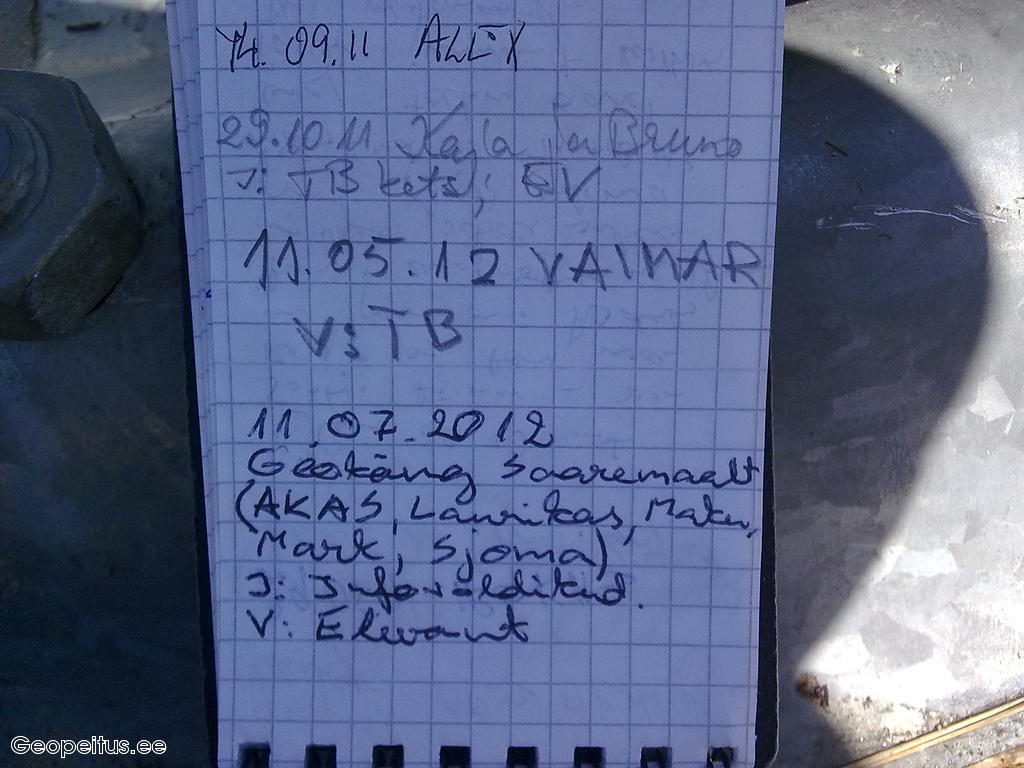 14.09.11 ALEX
29.10.11 Kaja ja Bruno
J: TB kots; EV
11.05.12 VAINAR
V: TB
11.07.2012
Geokäng Saaremaalt
(AKAS, Laurikas, Maku,
Mark, Sjoma)
J: Infovoldikud.
V: Elevant
Geopeitus.ee